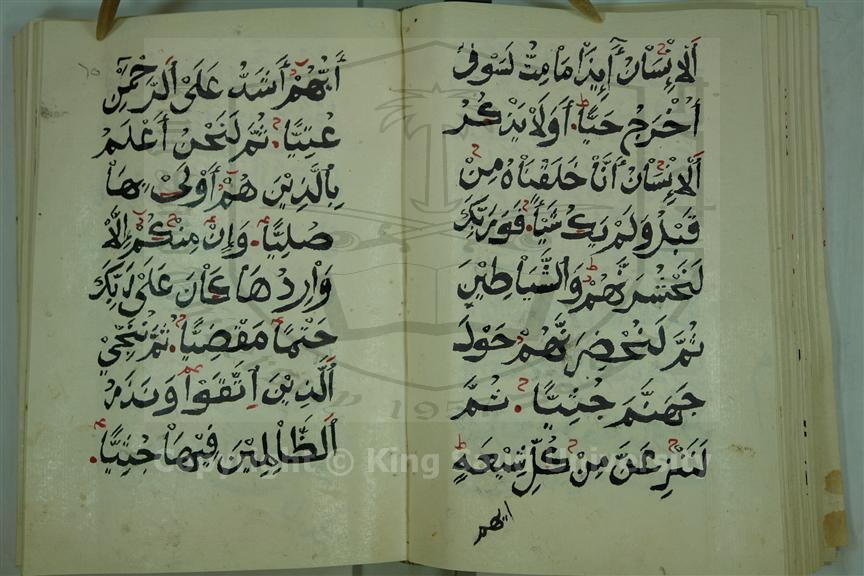 اَلْاِنْسَانُ أَءِذَا مَا مِتُّ لَسَوْفَ
اُخْرَجُ حَيًّا أَوَلَا يَذْكُرُ
اَلْاِنْسَانُ اَنَّا خَلَقْنَاهُ مِنْ
قَبْلُ وَلَمْ يَكُ شَيْاً فَوَرَبِّكَ
لَنَحْشُرَنَّهُمْ وَالشَّيَاطِيْنَ
ثُمَّ لَنُحْضِرَنَّهُمْ حَوْلَ
جَهَنَّمَ جُثِيًّا ثُمَّ
لَنَنْزِعَنَّ مِنْ كُلِّ شِيْعَةٍ
ايهم
٦٥
أَيُّهُمْ أَشَدُّ عَلَى الرَّحْمٰنِ
عُتِيًّا ثُمَّ لَنَحْنُ أَعْلَمُ
بِالَّذِيْنَ هُمْ أَوْلَىْ بِهَا
صُلِيًّا وَاِنْ مِنْكُمْ اِلَّا
وَارِدُهَا كَانَ عَلَىْ رَبِّكَ
حَتْمًا مَقْضِيًّا ثُمَّ نُنَجِّيْ
الَّذِيْنَ اتَّقَوْا وَنَذَرُ
الظَّالِمِيْنَ فِيْهَا جُثِيًّا
1957
Copyright © King Saud University